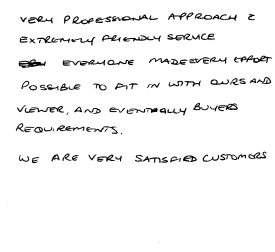 VERY PROFESSIONAL APPROACH &
EXTREMELY FRIENDLY SERVICE
EVERYONE MADE EVERY EFFORT
POSSIBLE TO FIT IN WITH OURS AND
VIEWER, AND EVENTUALLY BUYERS
REQUIREMENTS.
WE ARE VERY SATISFIED CUSTOMERS